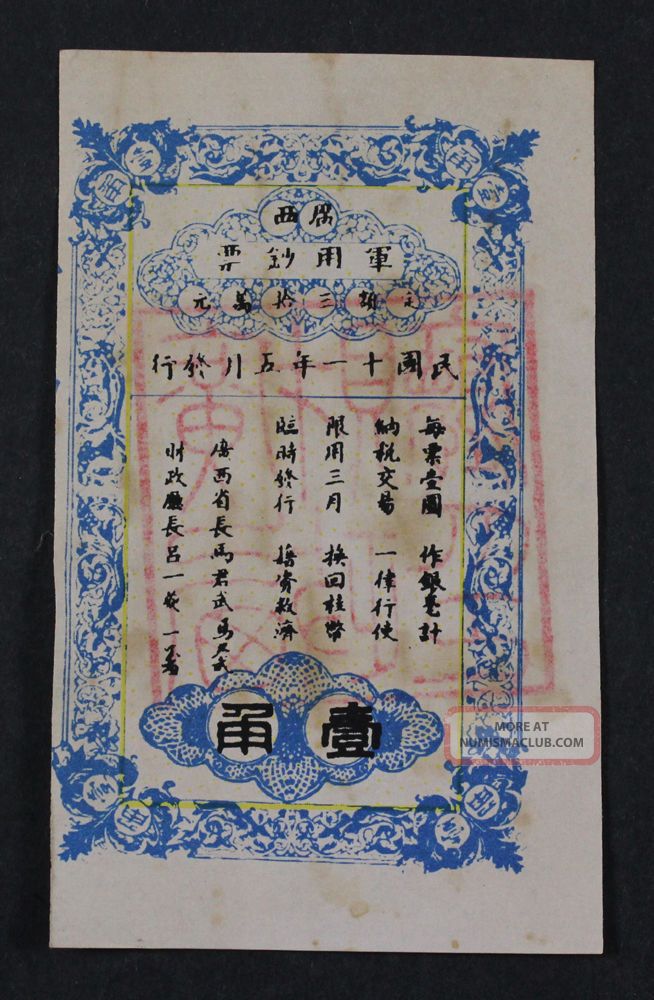 廣西
軍用鈔票
定額三拾萬元
民國十一年五月發行
每票壹圓 作銀毫計
納税交易 一律行使
限用三月 換回桂幣
臨時發行 藉資救濟
廣西省長馬君武 馬君武
財政廳長呂一夔 一夔
壹角
MORE AT
NUMISMACLUB.COM